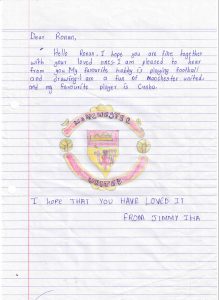 Dear Ronan,
" Hello Ronan. I hope you are fine together
with your loved ones. I am pleased to hear
from you. My favourite hobby is playing football
and drawing. I am a fan of manchester united.
and my favourite player is
MANCHESTER
UNITED
I HOPE THAT YOU HAVE LOVED IT
FROM JIMMY